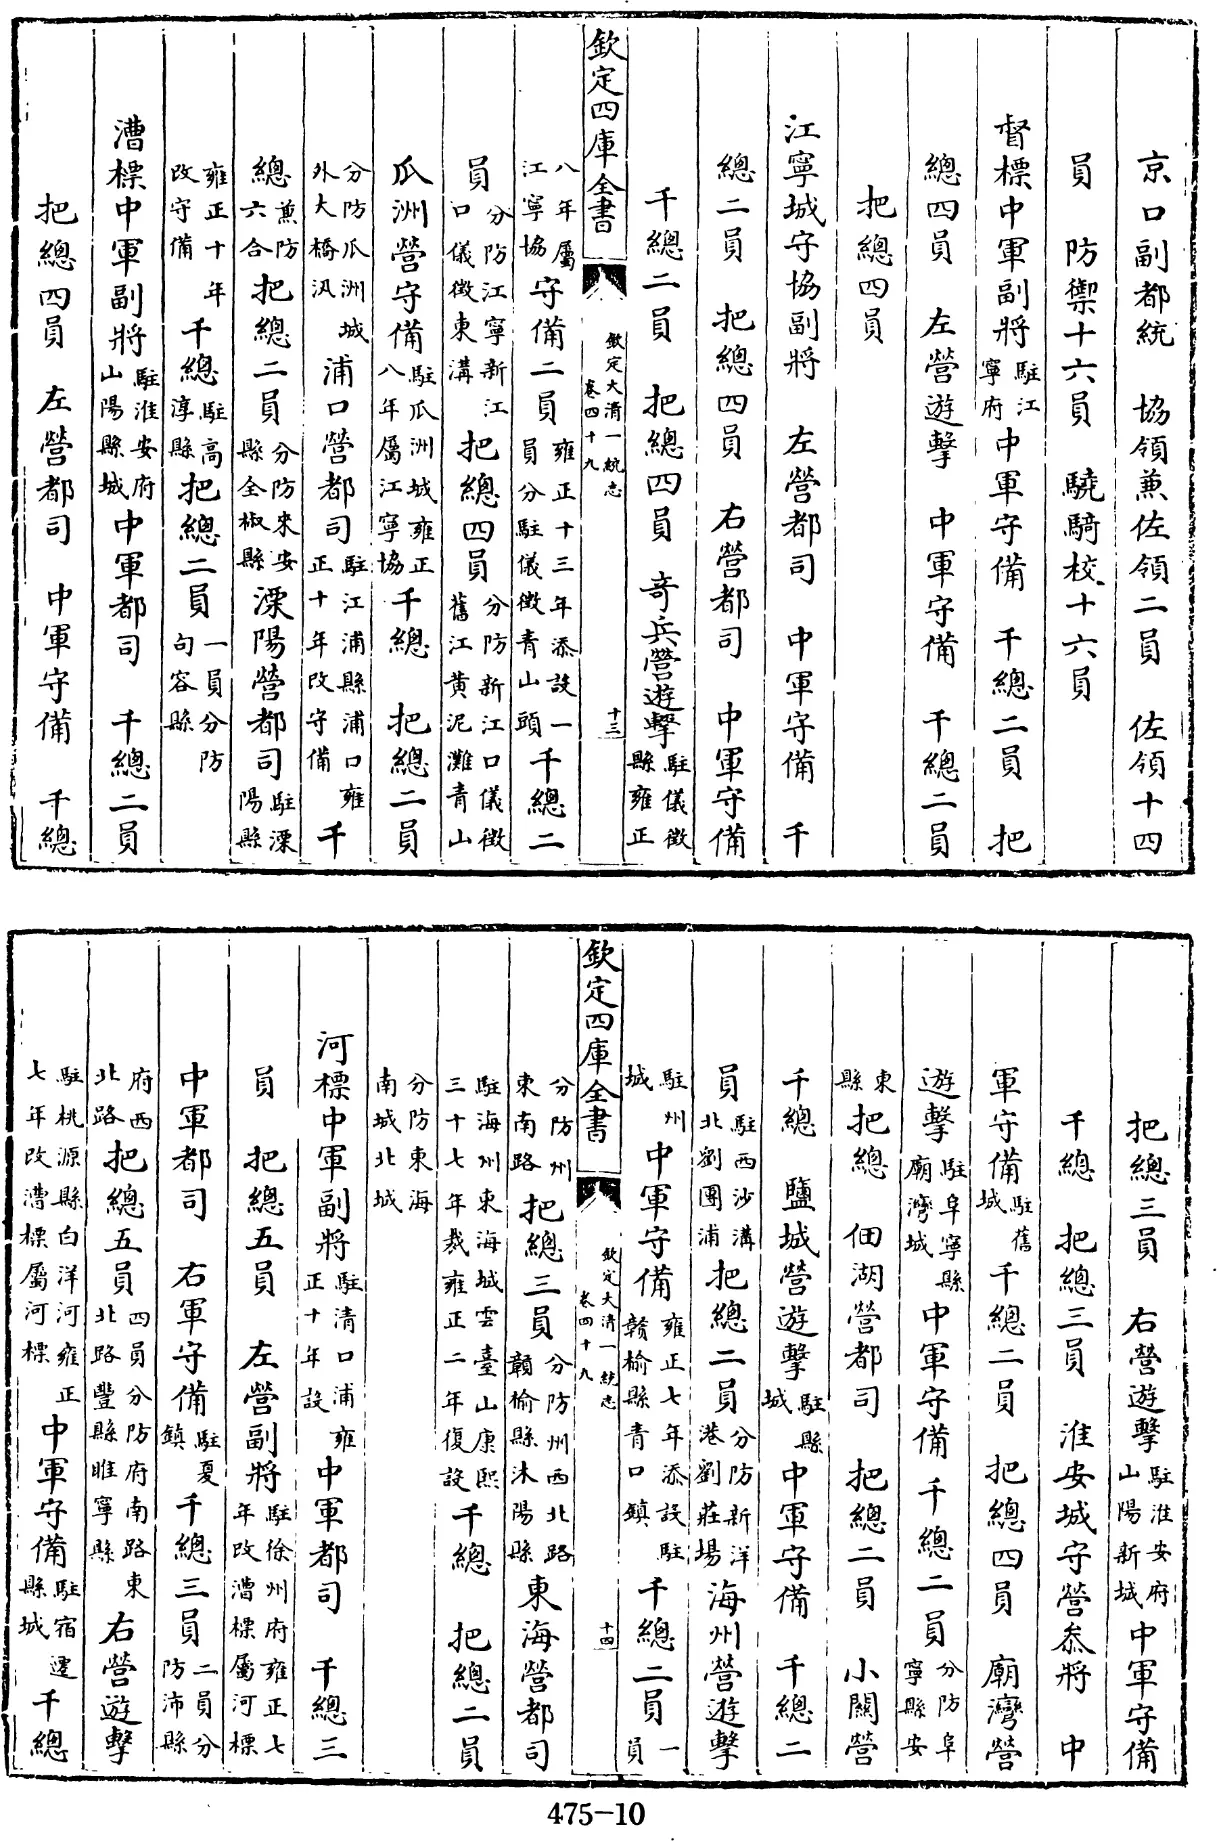 京口副都統　協領兼佐領二員　佐領十四
員　防禦十六員　驍騎校十六員
督標中軍副將駐江寧府中軍守備　千總二員　把
總四員　左營遊擊　中軍守備　千總二員
把總四員
江寧城守協副將　左營都司　中軍守備　千
總二員　把總四員　右營都司　中軍守備
千總二員　把總四員　奇兵營遊擊駐儀徵縣雍正
欽定四庫全書　欽定大清一統志卷四十九　十三
八年屬江寧協守備二員雍正十三年添設一員分駐儀徵青山頭千總二
員分防江寧新江口儀徵東溝把總四員分防新江口儀徵舊江黄泥灘青山
瓜洲營守備駐瓜洲城雍正八年屬江寧協千總　把總二員
分防瓜洲城外大橋汛浦口營都司駐江浦縣浦口雍正十年改守備千
總兼防六合把總二員分防來安縣全椒縣溧陽營都司駐溧陽縣
雍正十年改守備千總駐高淳縣把總二員一員分防句容縣
漕標中軍副將駐淮安府山陽縣城中軍都司　千總二員
把總四員　左營都司　中軍守備　千總
把總三員　右營遊擊駐淮安府山陽新城中軍守備
千總　把總三員　淮安城守營叅將　中
軍守備駐舊城千總二員　把總四員　廟灣營
遊擊駐阜寧縣廟灣城中軍守備　千總二員分防阜寧縣安
東縣把總　佃湖營都司　把總二員　小關營
千總　鹽城營遊擊駐縣城中軍守備　千總二
員駐西沙溝北劉團浦把總二員分防新洋港劉莊場海州營遊擊
駐州城中軍守備雍正七年添設駐贛榆縣青口鎮千總二員一員
欽定四庫全書　欽定大清一統志卷四十九　十四
分防州東南路把總三員分防州西北路贛榆縣沐陽縣東海營都司
駐海州東海城雲臺山康熙三十七年裁雍正二年復設千總　把總二員
分防東海南城北城
河標中軍副將駐清口浦雍正十年設中軍都司　千總三
員　把總五員　左營副將駐徐州府雍正七年改漕標屬河標
中軍都司　右軍守備駐夏鎮千總三員二員分防沛縣
府西北路把總五員四員分防府南路東北路豐縣睢寧縣右營遊擊
駐桃源縣白洋河雍正七年改漕標屬河標中軍守備駐宿遷縣城千總
475-10